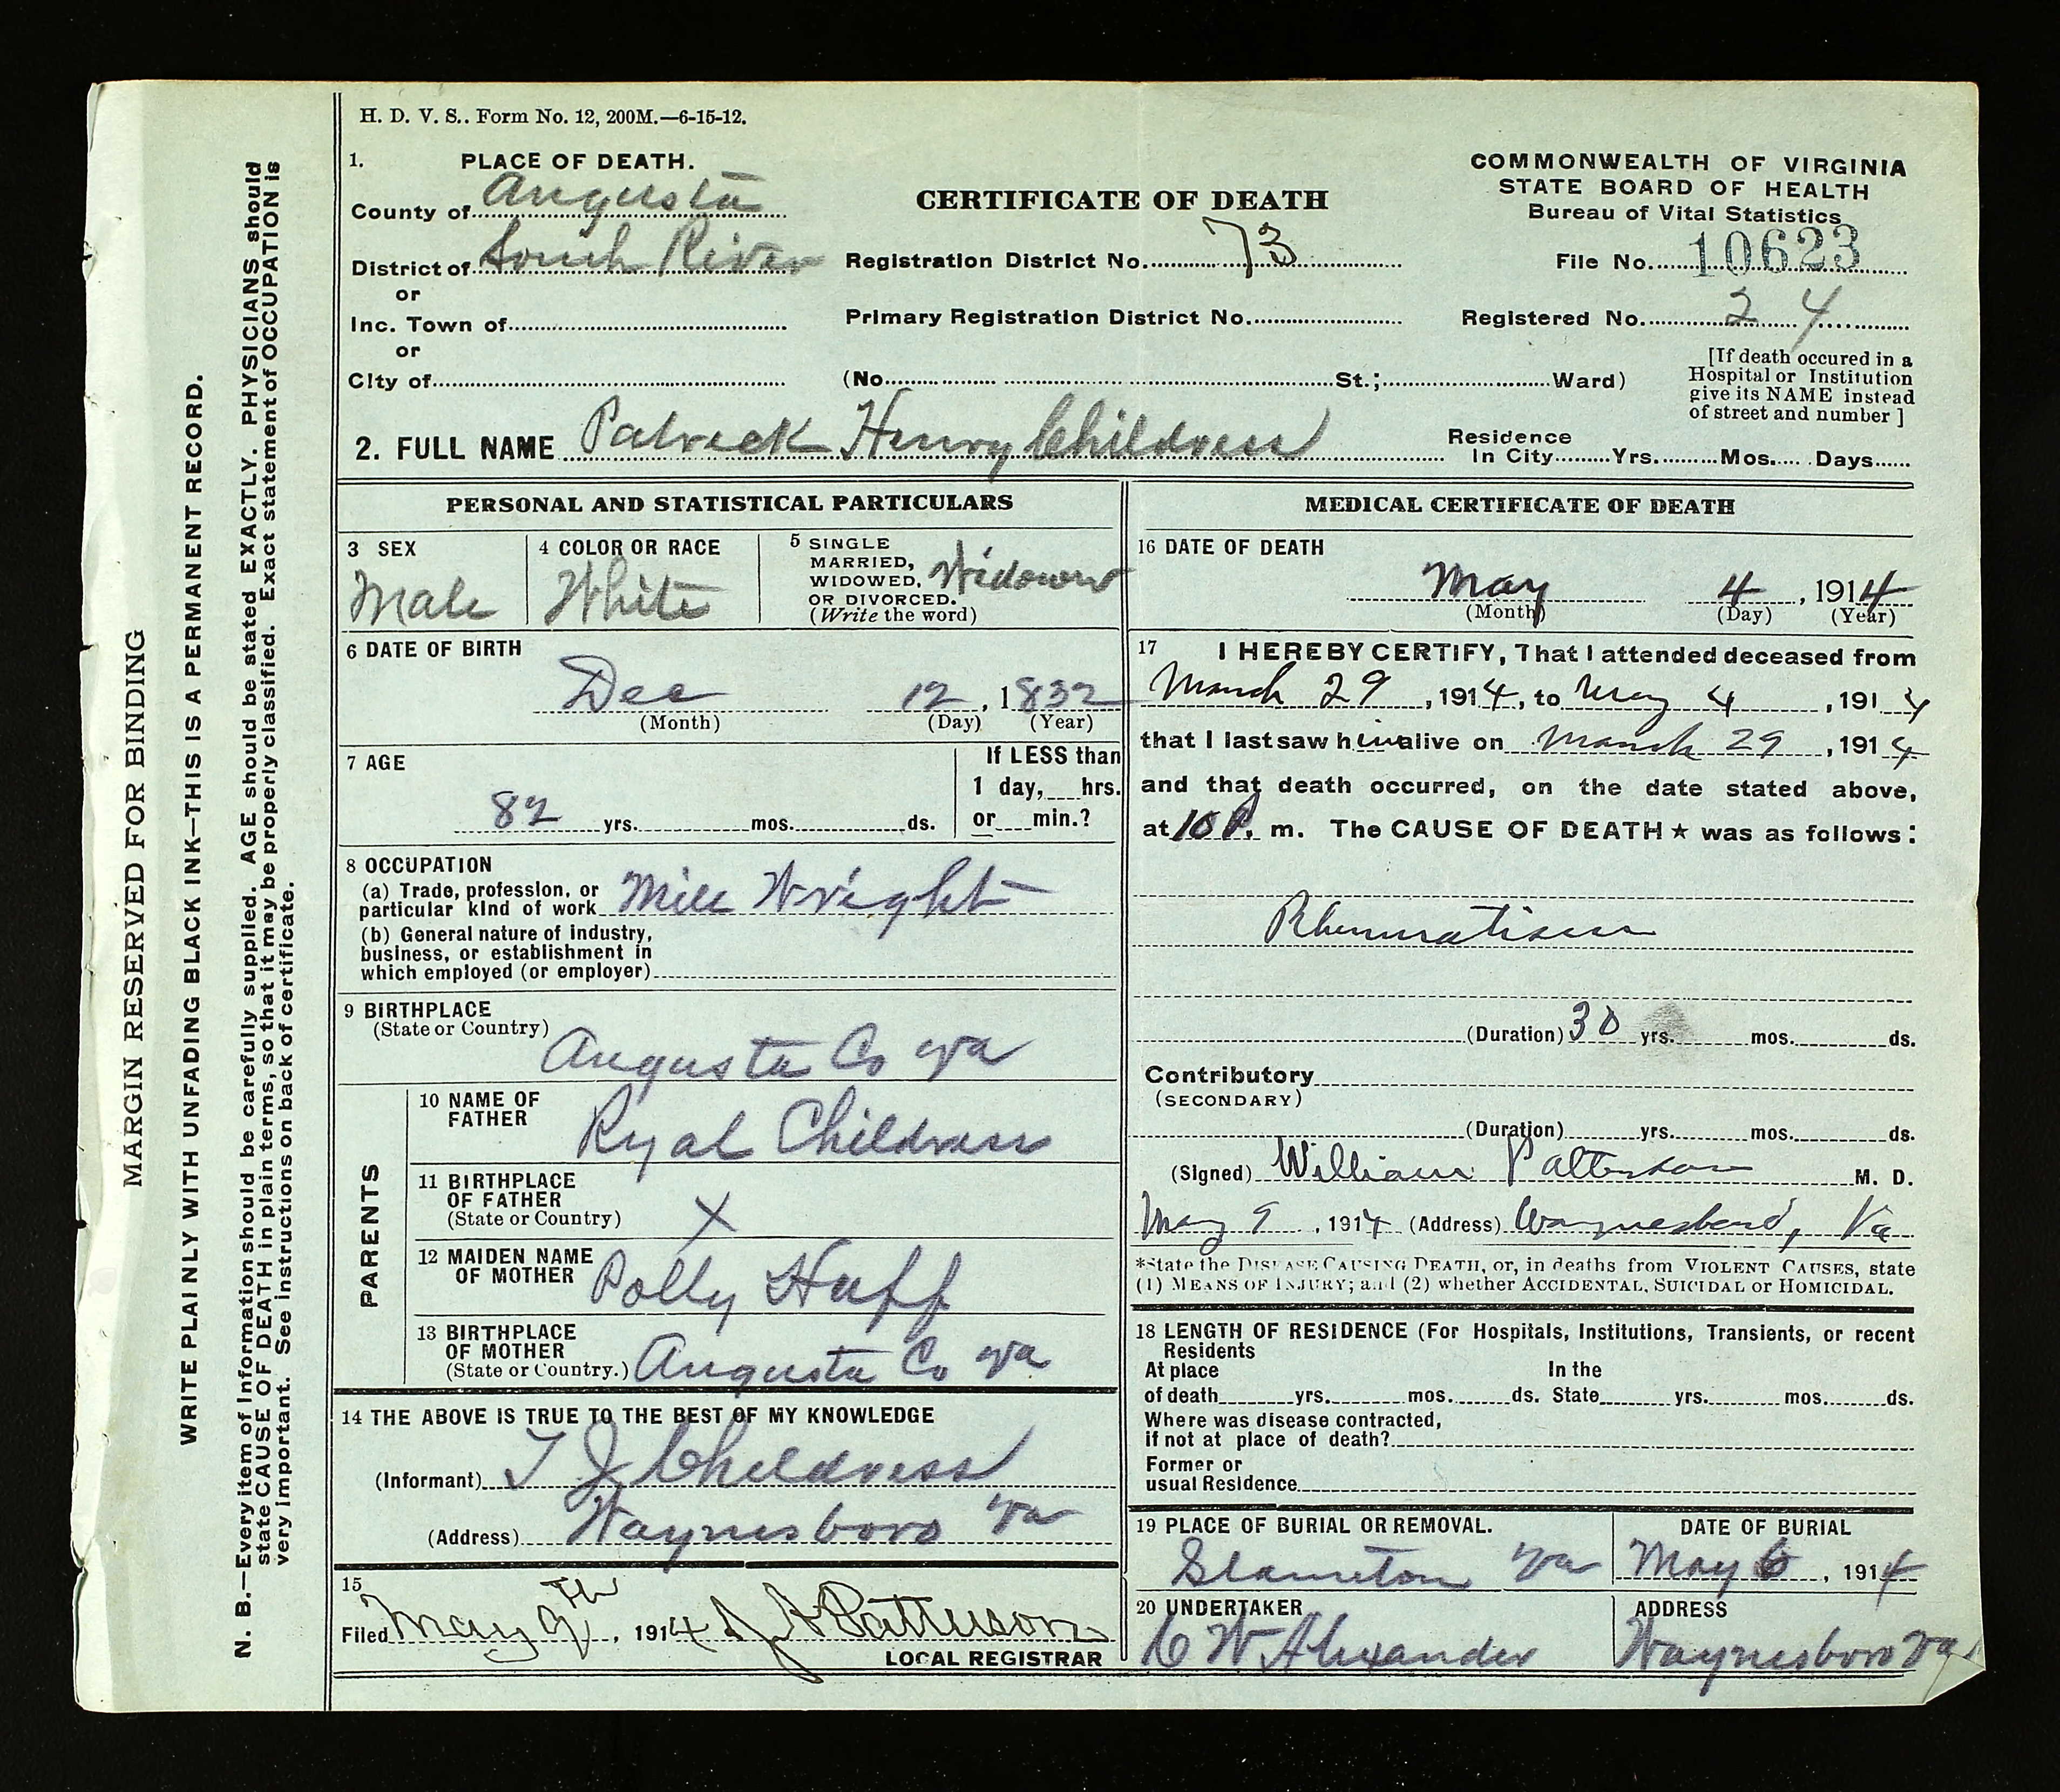 H. D. V. S.. Form No. 12, 200M.—6-15-12.
1. PLACE OF DEATH.
County of Augusta
District of South River
or
Inc. Town of
or
City of
CERTIFICATE OF DEATH
Registration District No. 73
Primary Registration District No.
(No. St.; Ward)
COMMONWEALTH OF VIRGINIA
STATE BOARD OF HEALTH
Bureau of Vital Statistics
File No. 10623
Registered No. 24
[If death occured in a
Hospital or Institution
give its NAME instead
of street and number ]
2. FULL NAME Patrick Henry Childress
Residence
In City Yrs. Mos. Days
PERSONAL AND STATISTICAL PARTICULARS
3 SEX
Male
4 COLOR OR RACE
White
5 SINGLE
MARRIED,
WIDOWED,
OR DIVORCED.
(Write the word)
Widower
6 DATE OF BIRTH
Dec 12, 1832
(Month) (Day) (Year)
7 AGE
82 yrs. mos. ds.
If LESS than
1 day, hrs.
or min.?
8 OCCUPATION
(a) Trade, profession, or
particular kind of work Mill Wright
(b) General nature of industry,
business, or establishment in
which employed (or employer)
9 BIRTHPLACE
(State or Country)
Augusta Co Va
PARENTS
10 NAME OF
FATHER
Ryal Childress
11 BIRTHPLACE
OF FATHER
(State or Country)
X
12 MAIDEN NAME
OF MOTHER
Polly Huff
13 BIRTHPLACE
OF MOTHER
(State or Country.) Augusta Co Va
14 THE ABOVE IS TRUE TO THE BEST OF MY KNOWLEDGE
(Informant) T J Childress
(Address) Waynesboro Va
15
Filed May 9th, 1914 J A Patterson
LOCAL REGISTRAR
MEDICAL CERTIFICATE OF DEATH
16 DATE OF DEATH
May 4, 1914
(Month) (Day) (Year)
17 I HEREBY CERTIFY, That I attended deceased from
March 29, 1914, to May 4, 1914
that I last saw him alive on March 29, 1914
and that death occurred, on the date stated above,
at 10 P. m. The CAUSE OF DEATH★ was as follows:
Rheumatism
(Duration) 30 yrs. mos. ds.
Contributory
(SECONDARY)
(Duration) yrs. mos. ds.
(Signed) William Patterson M. D.
May 9, 1914 (Address) Waynesboro, Va
*State the DISEASE CAUSING DEATH, or, in deaths from VIOLENT CAUSES, state
(1) MEANS OF INJURY; and (2) whether ACCIDENTAL, SUICIDAL or HOMICIDAL.
18 LENGTH OF RESIDENCE (For Hospitals, Institutions, Transients, or recent
Residents
At place In the
of death yrs. mos. ds. State yrs. mos. ds.
Where was disease contracted,
if not at place of death?
Former or
usual Residence
19 PLACE OF BURIAL OR REMOVAL.
Staunton Va
DATE OF BURIAL
May 6, 1914
20 UNDERTAKER
C W Alexander
ADDRESS
Waynesboro Va
MARGIN RESERVED FOR BINDING
WRITE PLAINLY WITH UNFADING BLACK INK—THIS IS A PERMANENT RECORD.
N. B.—Every item of information should be carefully supplied. AGE should be stated EXACTLY. PHYSICIANS should
state CAUSE OF DEATH in plain terms, so that it may be properly classified. Exact statement of OCCUPATION is
very important. See instructions on back of certificate.